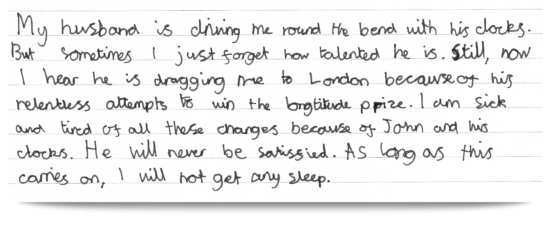 My husband is driving me round the bend with his clocks.
But sometimes I just forget how talented he is. Still, now
I hear he is dragging me to London because of his
relentless attempts to win the longtitude prize. I am sick
and tired of all these changes because of John and his
clocks. He will never be satissied. As long as this
carries on, I will not get any sleep.